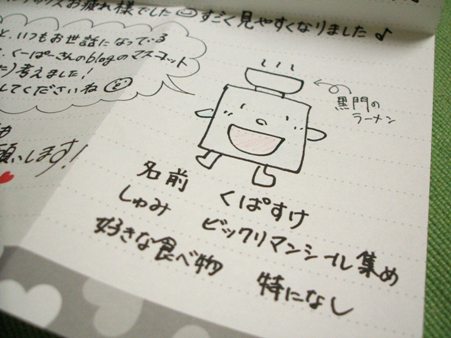 お疲れ様でした すごく見やすくなりました♪
と、いつもお世話になっている
くーぱーさんのblogのマスコット
考えました!
してくださいね
願いします!
黒門の
ラーメン
名前 くぱすけ
しゅみ ビックリマンシール集め
好きな食べ物 特になし